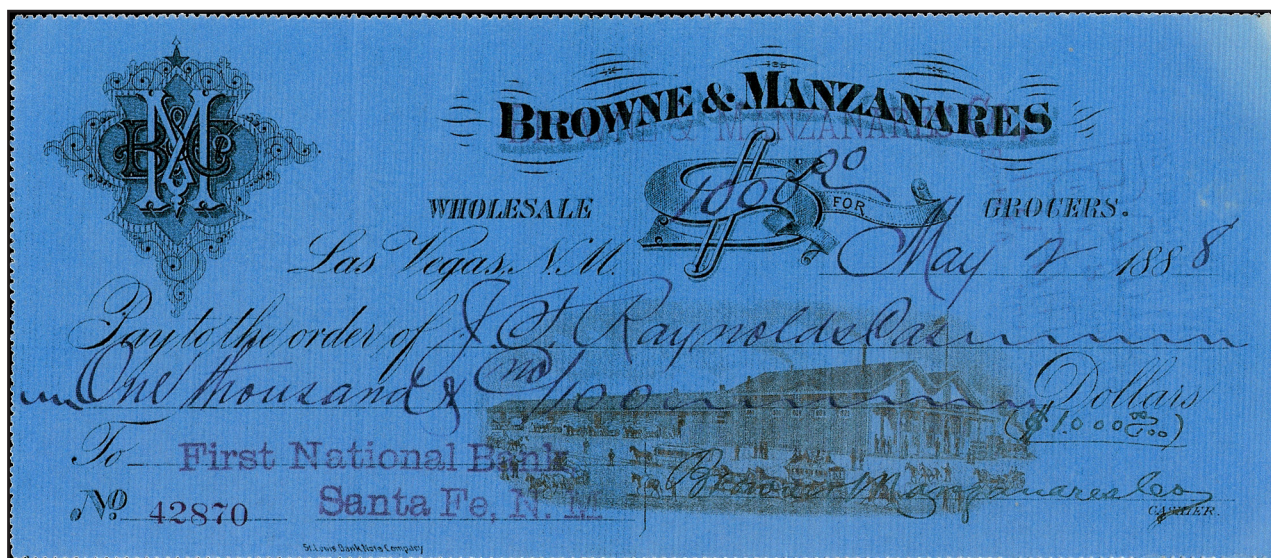 BROWNE & MANZANARES
BROWNE & MANZANARES Co.
$1000 00
WHOLESALE FOR GROCERS.
Las Vegas, N.M. May 2 1888
Pay to the order of J. S. Raynolds Cas
One thousand & no/100 Dollars
($1.000 00/100)
To First National Bank
Santa Fe, N. M
No 42870
Browne Manzanares Co
CASHIER.
St. Louis Bank Note Company